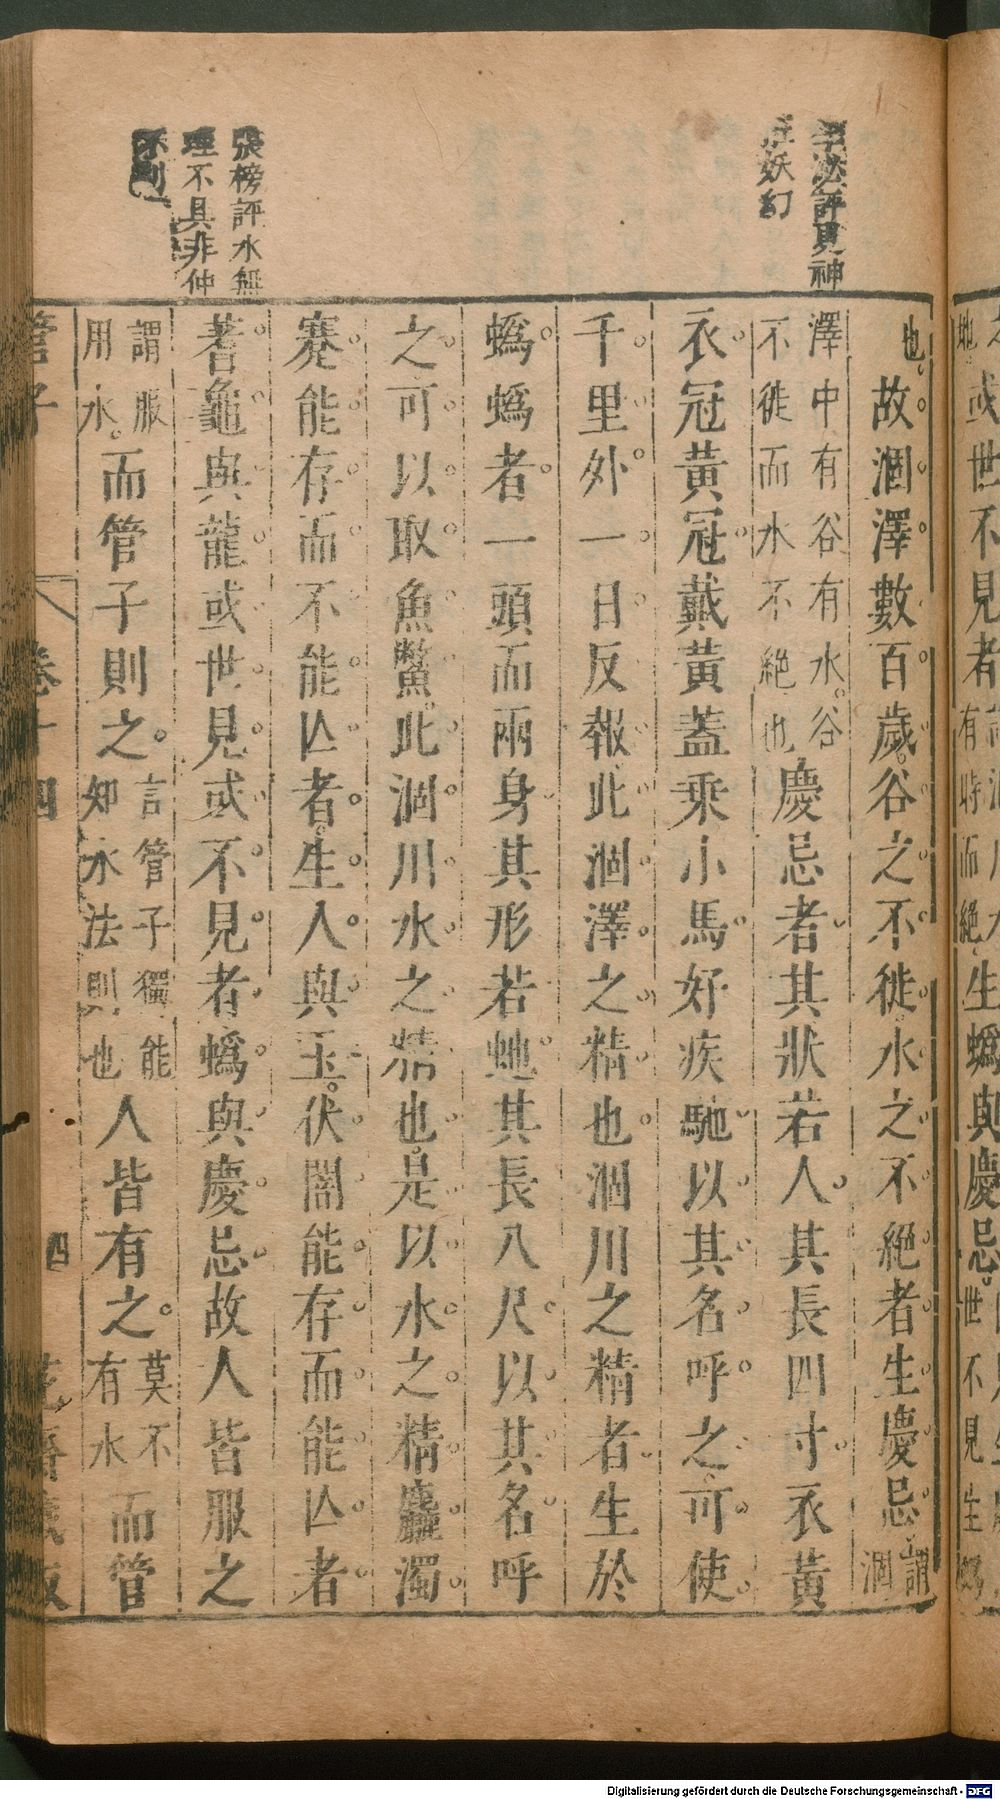 評見神
妖幻
張榜評水無
理不具非仲
也故涸澤數百歲谷之不徙水之不絕者生慶忌謂涸
澤中有谷有水谷不徙而水不絕也慶忌者其狀若人其長四寸衣黃
衣冠黃冠戴黃蓋乘小馬好疾馳以其名呼之可使
千里外一日反報此涸澤之精也涸川之精者生於
蟡蟡者一頭而兩身其形若虵其長八尺以其名呼
之可以取魚鱉此涸川水之精也是以水之精麤濁
蹇能存而不能亾者生人與玉伏闇能存而能亾者
蓍龜與龍或世見或不見者蟡與慶忌故人皆服之
謂服用水而管子則之言管子獨能知水法則也人皆有之莫不有水而管
管子 卷十四 四
或世不見者 有時而絕 生蟡與慶忌 世不見生
Digitalisierung gefördert durch die Deutsche Forschungsgemeinschaft - DFG